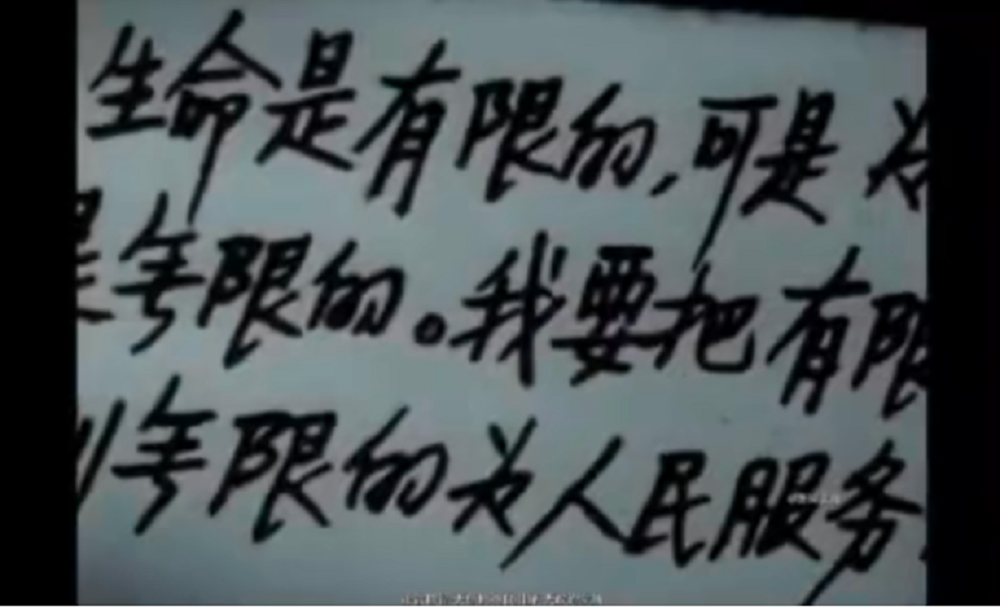 生命是有限的,可是为
是无限的。我要把有限
无限的为人民服务